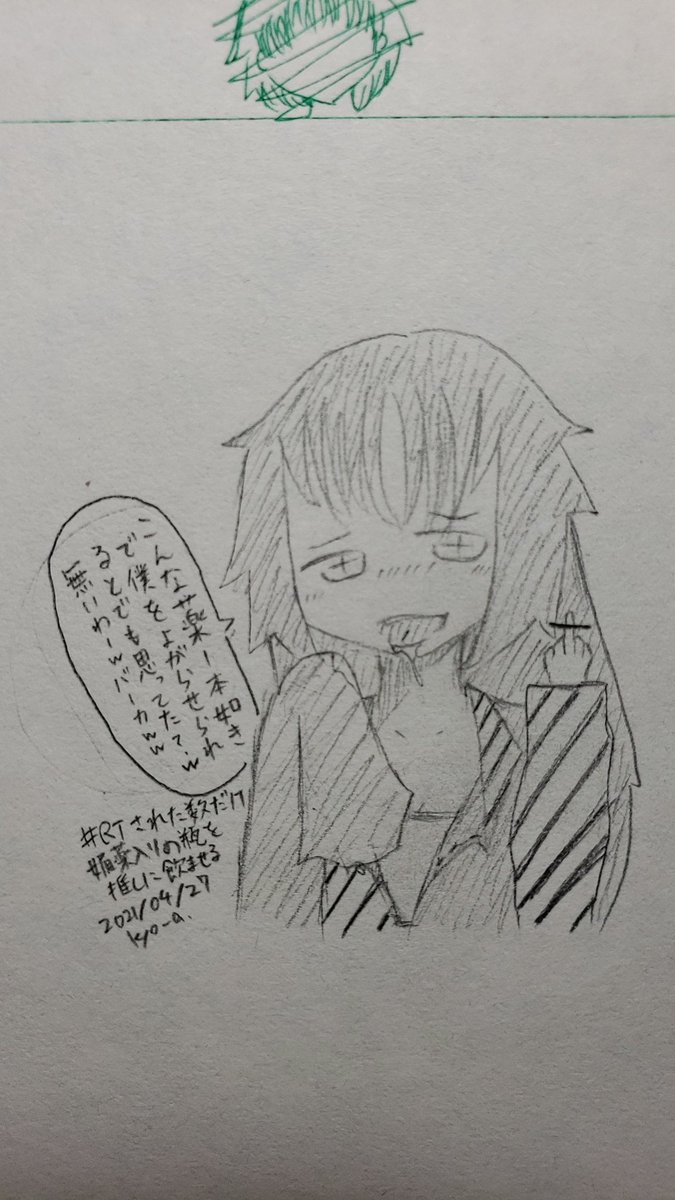 こんな薬一本如き
で僕をよがらせられ
るとでも思ってた？w
無いわーwバーカww
#RTされた数だけ
媚薬入りの瓶を
推しに飲ませる
2021/04/27
kyo-a.